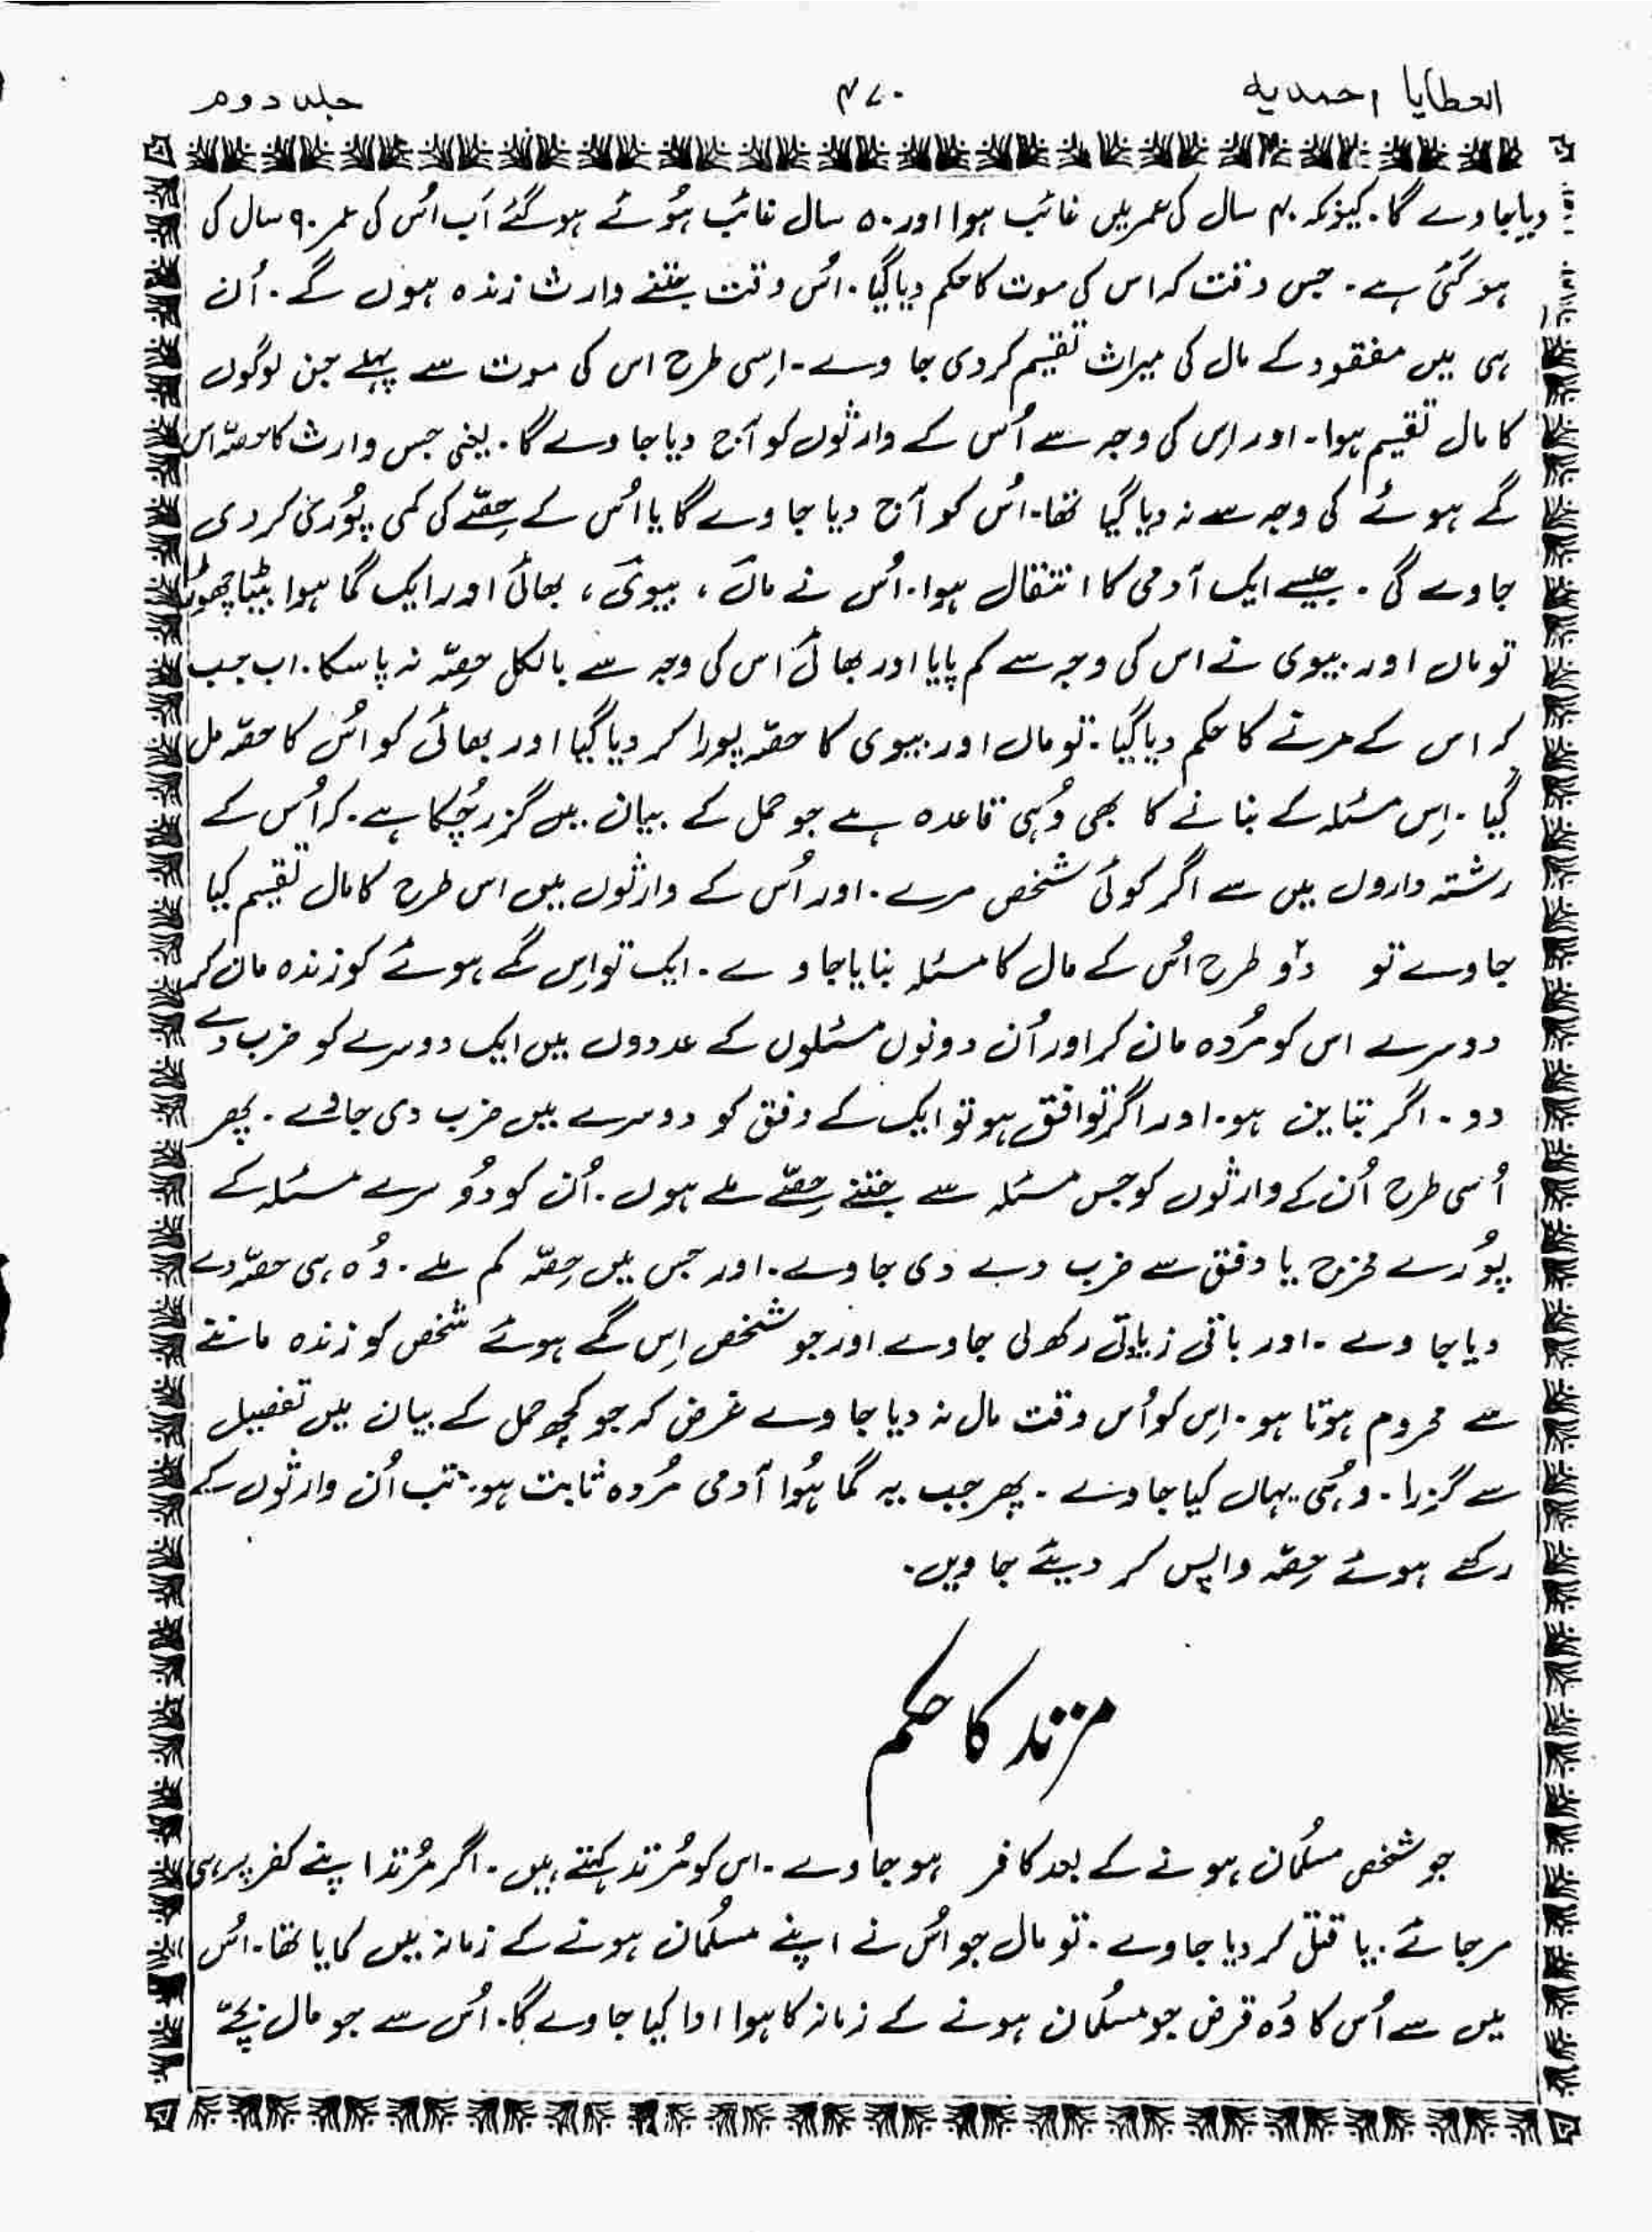 العطایا احمدیہ
۴۷۰
جلد دوم
دیا جاوے گا۔ کیونکہ ۴۰ سال کی عمر میں غائب ہوا اور ۵۰ سال غائب ہُوئے ہو گئے اَب اُس کی عمر ۹۰ سال کی
ہو گئی ہے۔ جس وقت کہ اس کی موت کا حکم دیا گیا۔ اُس وقت جتنے وارث زندہ ہوں گے۔ اُن
ہی میں مفقود کے مال کی میراث تقسیم کر دی جا وے۔ اِسی طرح اس کی موت سے پہلے جن لوگوں
کا مال تقسیم ہوا۔ اور اِس کی وجہ سے اُس کے وارثوں کو آج دیا جا وے گا۔ یعنی جس وارث کا حصّہ اس
گمے ہوئے کی وجہ سے نہ دیا گیا تھا۔ اُس کو آج دیا جا وے گا یا اُس کے حِصّے کی کمی پُوری کر دی
جاوے گی۔ جیسے ایک آدمی کا انتقال ہوا۔ اُس نے ماں، بیوی، بھائی اور ایک گما ہوا بیٹا چھوڑا
تو ماں اور بیوی نے اس کی وجہ سے کم پایا اور بھائی اس کی وجہ سے بالکل حِصّہ نہ پا سکا۔ اب جب
کہ اس کے مرنے کا حکم دیا گیا۔ تو ماں اور بیوی کا حصّہ پورا کر دیا گیا اور بھائی کو اُس کا حصّہ مل
گیا۔ اِس مسئلہ کے بنانے کا بھی وُہی قاعدہ ہے جو حمل کے بیان میں گزر چُکا ہے۔ کہ اُس کے
رشتہ داروں میں سے اگر کوئی شخص مرے۔ اور اُس کے وارثوں میں اس طرح کا مال تقسیم کیا
جاوے تو دو طرح اُس کے مال کا مسئلہ بنایا جاو ے۔ ایک تو اِس گمے ہوئے کو زندہ مان کر
دوسرے اس کو مُردہ مان کر اور اُن دونوں مسئلوں کے عددوں میں ایک دوسرے کو ضرب دے
دو۔ اگر تباین ہو۔ اور اگر توافق ہو تو ایک کے وفق کو دوسرے میں ضرب دی جاوے۔ پھر
اُسی طرح اُن کے وارثوں کو جس مسئلہ سے جتنے حِصّے ملے ہوں۔ اُن کو دُوسرے مسئلہ کے
پُورے مخرج یا وفق سے ضرب دے دی جاوے۔ اور جس میں حِصّہ کم ملے۔ وُہ ہی حصّہ دے
دیا جا وے۔ اور باقی زیادتی رکھ لی جاوے اور جو شخص اِس گمے ہوئے شخص کو زندہ ماننے
سے محروم ہوتا ہو۔ اِس کو اُس وقت مال نہ دیا جا وے غرض کہ جو کچھ حمل کے بیان میں تفصیل
سے گزرا۔ وہُی یہاں کیا جاوے۔ پھر جب یہ گما ہُوا آدمی مُردہ ثابت ہو۔ تب اُن وارثوں کے
رکھے ہوئے حِصّہ واپس کر دیئے جاویں۔
مرتد کا حکم
جو شخص مسلمان ہونے کے بعد کافر ہو جاوے۔ اس کو مُرتد کہتے ہیں۔ اگر مُرتد اپنے کفر پر ہی
مر جائے۔ یا قتل کر دیا جاوے۔ تو مال جو اُس نے اپنے مسلمان ہونے کے زمانہ میں کمایا تھا۔ اُس
میں سے اُس کا وُہ قرض جو مسلمان ہونے کے زمانہ کا ہوا ادا کیا جاوے گا۔ اُس سے جو مال بچے